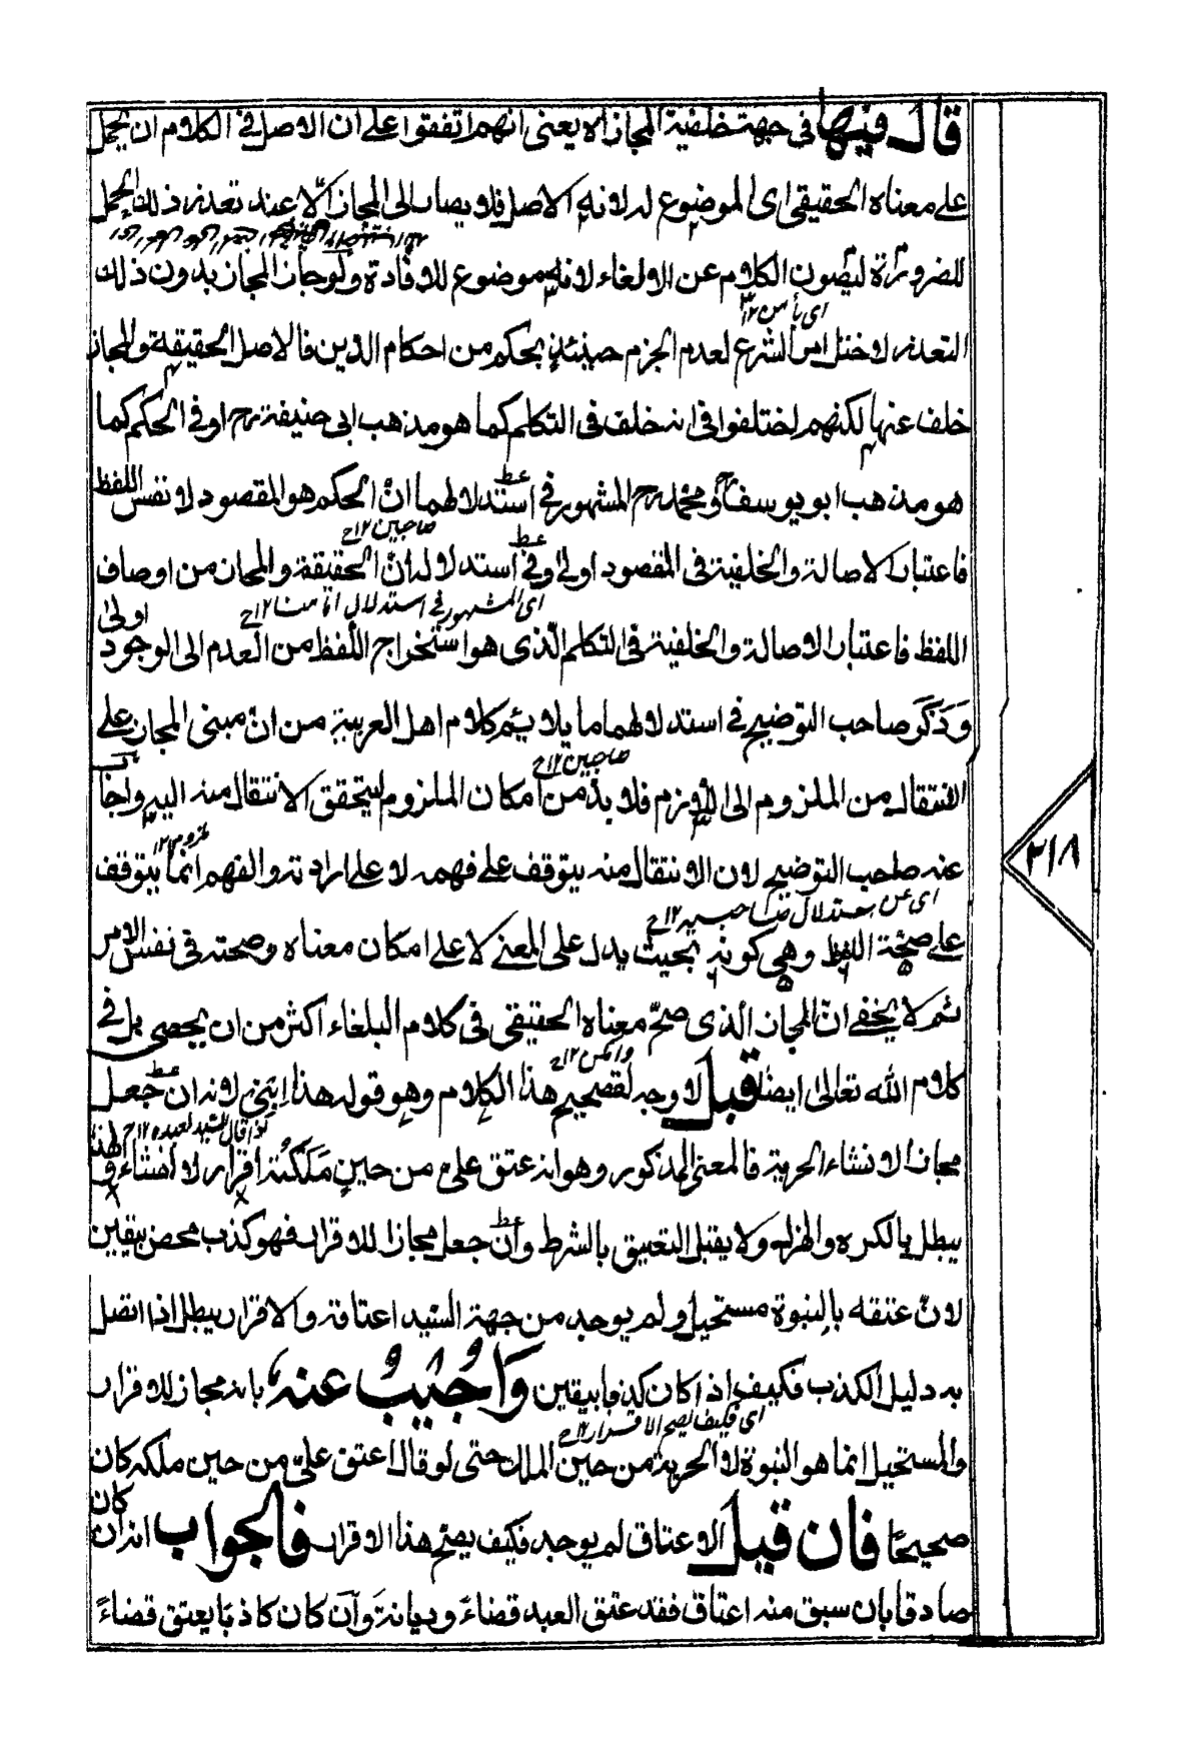 قال فيها في جهة خلفية المجاز اه يعني انهم اتفقوا على ان الاصل في الكلام ان يحمل
على معناه الحقيقي اى الموضوع له لانه الاصل فلا يصار الى المجاز الّا عند تعذر ذلك الحمل
للضرورة لتصون الكلام عن الالغاء لانه موضوع للافادة ولوجاز المجاز بدون ذلك
اى بأس ١٢
التعذر لاختل امر الشرع لعدم الجزم حينئذٍ بحكم من احكام الدين فالاصل الحقيقة والمجاز
خلف عنها لكنهم اختلفوا في انه خلف في التكلم كما هو مذهب ابى حنيفة رح او في الحكم كما
هو مذهب ابو يوسف رح ومحمد رح المشهور في استدلالهما انّ الحكم هو المقصود لا نفس اللفظ
صاحبين ١٢ح
فاعتبار الاصالة والخلفية في المقصود اولى وفي استدلاله انّ الحقيقة والمجاز من اوصاف
اى المشهور في استدلال امامنا ١٢ح
اللفظ فاعتبار الاصالة والخلفية في التكلم الّذى هو استخراج اللفظ من العدم الى الوجود اولىٰ
وَذكَر صاحب التوضيح في استدلالهما ما يلايم كلام اهل العربية من انّ مبنى المجاز على
صاحبين ١٢ح
الانتقال من الملزوم الى اللازم فلا بدّ من امكان الملزوم ليتحقق الانتقال منه اليه واجاب
ملزوم ١٢
عنه صاحب التوضيح لان الانتقال منه يتوقف على فهمه لا على ارادته والفهم انما يتوقف
اى عن استدلال صاحبيه ١٢ح
على صحّة اللفظ وهي كونه بحيث يدل على المعنى لا على امكان معناه وصحته في نفس الامر
ثم لا يخفى انّ المجاز الّذى صحّ معناه الحقيقي في كلام البلغاء اكثر من ان يحصى بل في
وانكس ١٢ح
كلام الله تعالىٰ ايضًا قيل لا وجه لتصحيح هذا الكلام وهو قوله هذا ابني لانه ان جعل
اذا قال السيد لعبده ١٢ح
مجاز الانشاء الحرية فالمعنى المذكور وهو انه عتق علىّ من حين مَلَكتُه اقرار لا انشاء ولهذا
يبطل بالكره والهزل ولا يقبل التعليق بالشرط وان جعل مجازا للاقرار فهو كذب محض بيقين
لانّ عتقه بالبنوة مستحيل ولم يوجد من جهة السّيد اعتاقه والاقرار يبطل اذا اتصل
به دليل الكذب فكيف اذا كان كذبا بيقين وَاُجيبُ عنه بانه مجاز للاقرار
اى فكيف يصح الاقرار ١٢ح
والمستحيل انما هو البنوة لا الحرية من حين الملك حتى لو قال اعتق علىّ من حين ملكه كان
صحيحًا فان قيل الاعتاق لم يوجد فكيف يصح هذا الاقرار فالجواب انه ان كان
صادقا بان سبق منه اعتاق فقد عتق العبد قضاءً وديانةً وان كان كاذبًا يعتق قضاءً
٢١٨